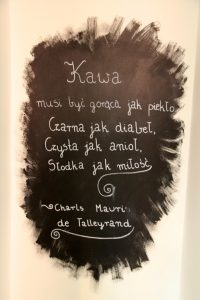 Kawa
musi być gorąca jak piekło
Czarna jak diabeł,
Czysta jak anioł,
Słodka jak miłość
Charls Mauris
de Talleyrand